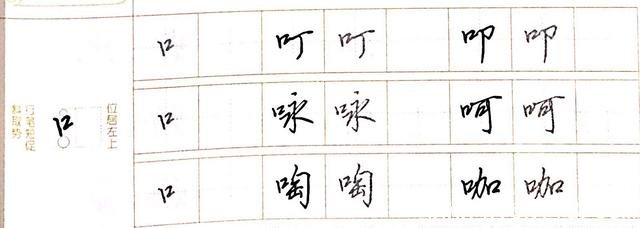 口 叮 叮 叩 叩
口 咏 咏 呵 呵
口 啕 啕 咖 咖
位居左上
口
行笔短促
斜取势